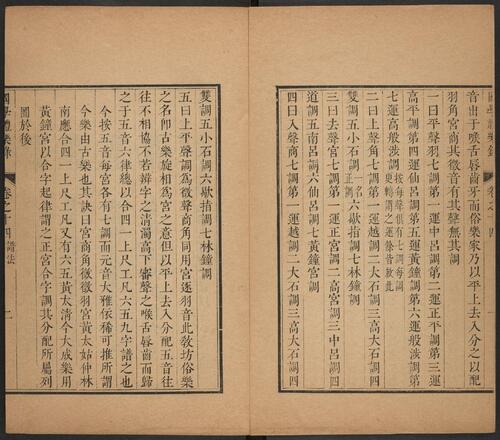 音出于喉舌唇齒牙而俗樂家乃以平上去入分之以配
羽角宮商其徵音有其聲無其調
一曰平聲羽七調第一運中呂調第二運正平調第三運
高平調第四運仙呂調第五運黃鐘調第六運般涉調第
七運高般涉調按每聲俱有七調每調更轉謂之運餘皆放此
二曰上聲角七調第一運越調二大石調三高大石調四
雙調五小石調名正調六歇指調七林鐘調
三曰去聲宮七調第一運正宮調二高宮調三中呂調四
道調五南呂調六仙呂調七黃鐘宮調
四曰入聲商七調第一運越調二大石調三高大石調四
國學禮樂錄 卷之十四 譜法
雙調五小石調六歇指調七林鐘調
五曰上平聲調為徵聲商角同用宮逐羽音此教坊俗樂
之名卽古樂旋相為宮之意但以平上去入分配五音往
往不相協不若辨字之清濁高下審聲之喉舌唇齒而歸
之于五音六律總以合四一上尺工凡六五九字譜之也
今按五音每宮各有七調而元音大雅依稀可推所謂
今樂由古樂也其訣曰宮商角徵徵羽宮黃太姑仲林
南應合四一上尺工凡又有六五黃太清今大成樂用
黃鐘宮以合今起律謂之正宮合字調其分配所屬列
圖於後